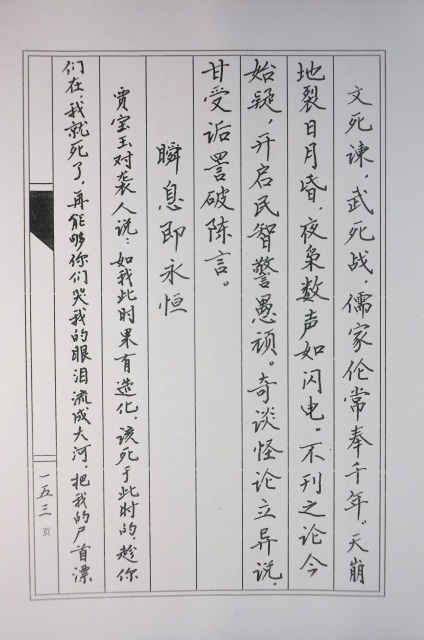 文死谏，武死战，儒家伦常奉千年。天崩
地裂日月昏，夜枭数声如闪电。不刊之论今
始疑，开启民智警愚顽。奇谈怪论立异说，
甘受诟詈破陈言。
瞬息即永恒
贾宝玉对袭人说：如我此时果有造化，该死于此时的，趁你
们在，我就死了，再能够你们哭我的眼泪流成大河，把我的尸首漂
一五三页